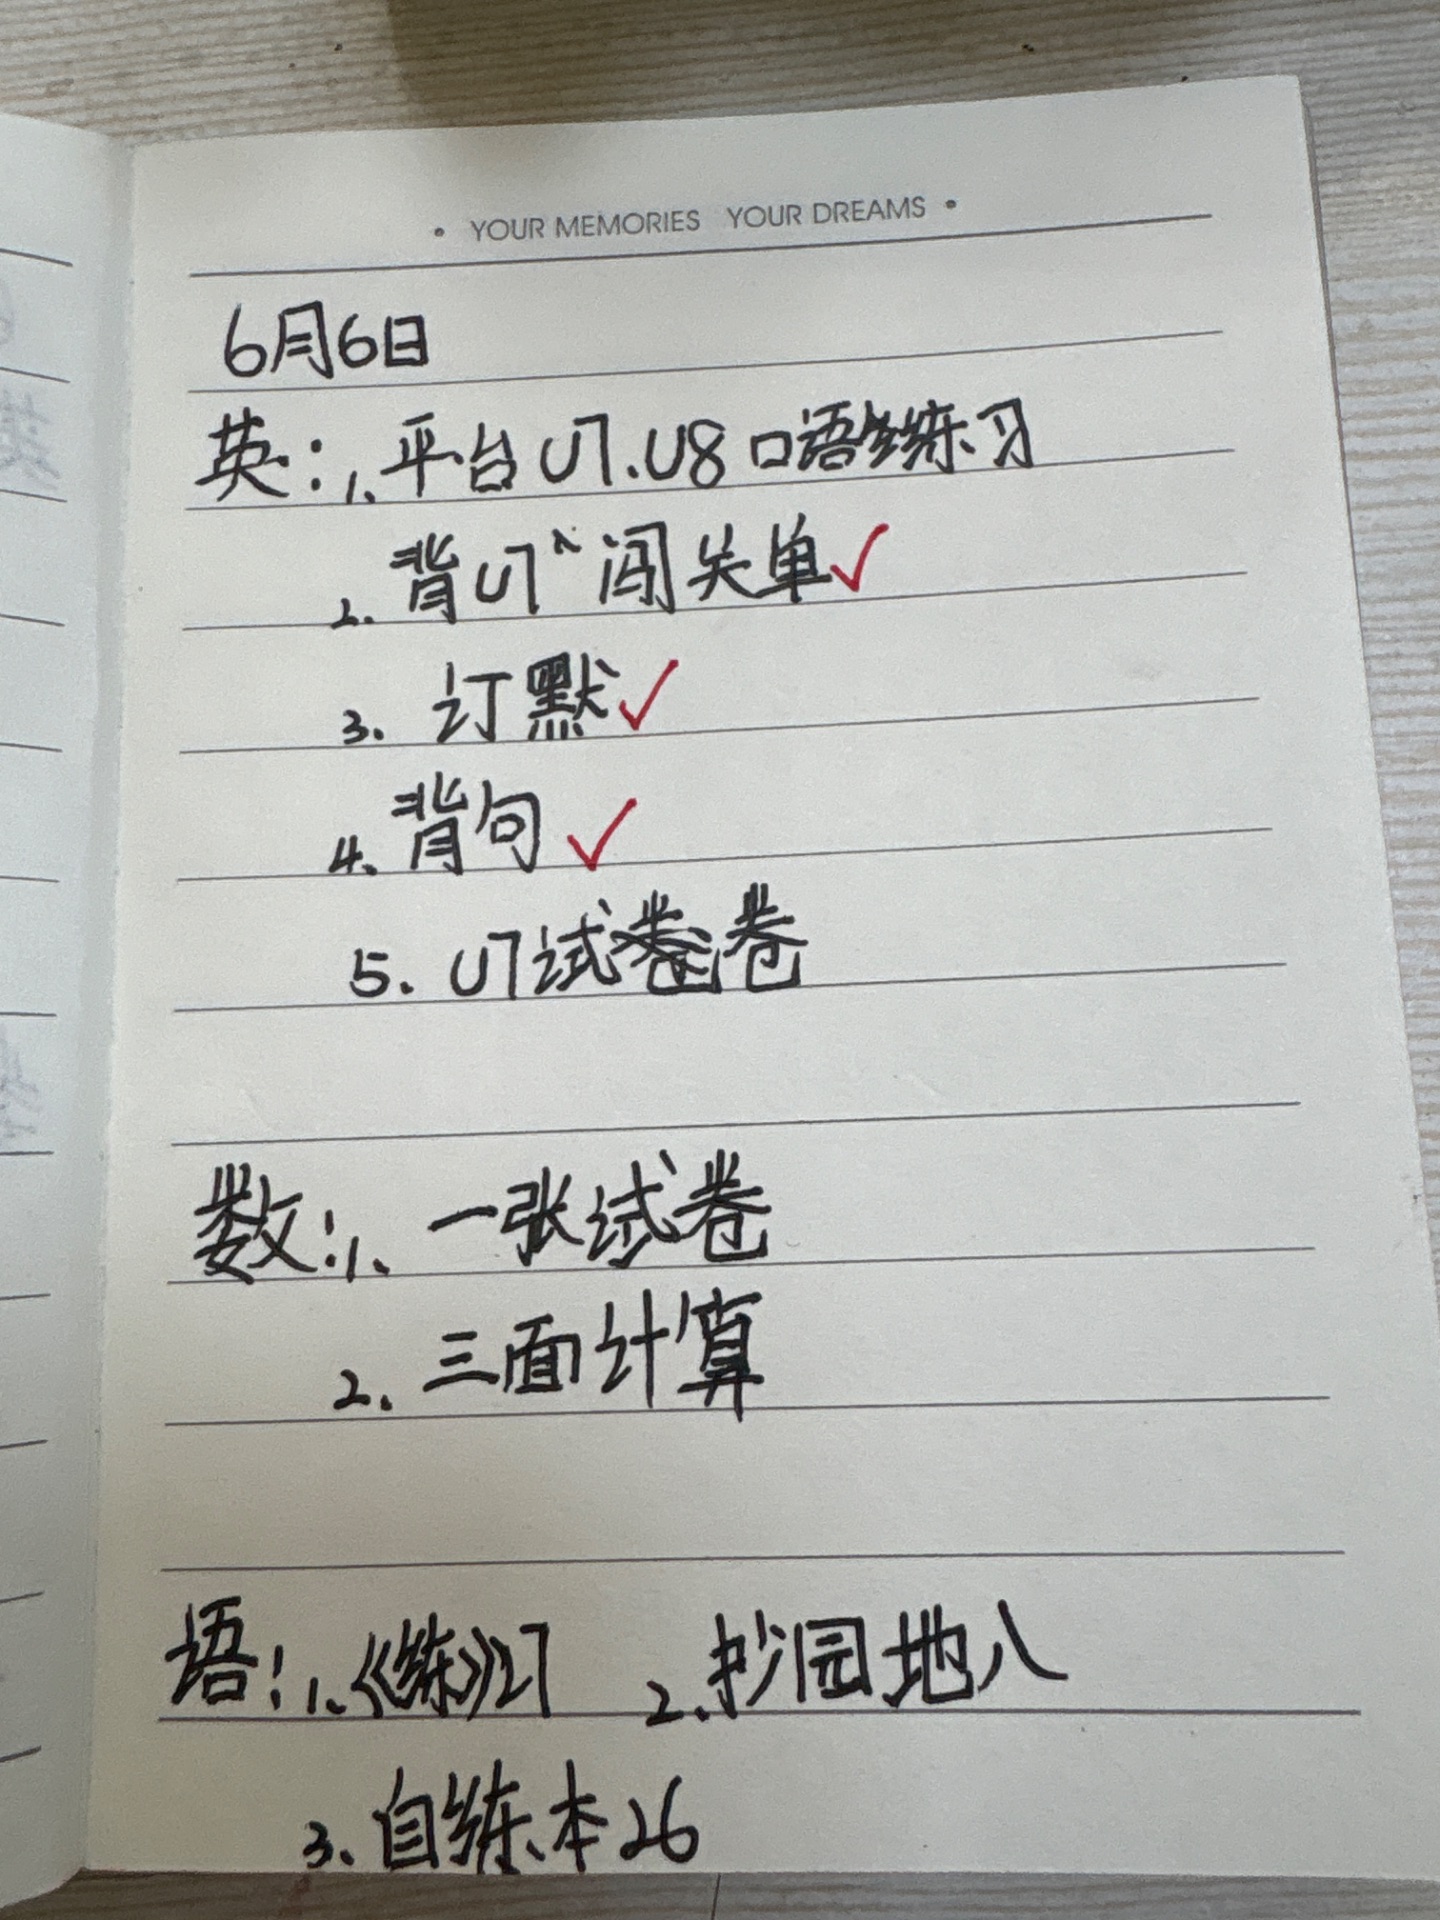 • YOUR MEMORIES YOUR DREAMS •
6月6日
英:1、平台U7.U8口语练习
2. 背U7、闯关单✓
3. 订默✓
4. 背句✓
5. U7试卷
数:1、一张试卷
2. 三面计算
语:1、《练》27 2、抄园地八
3、自练本26